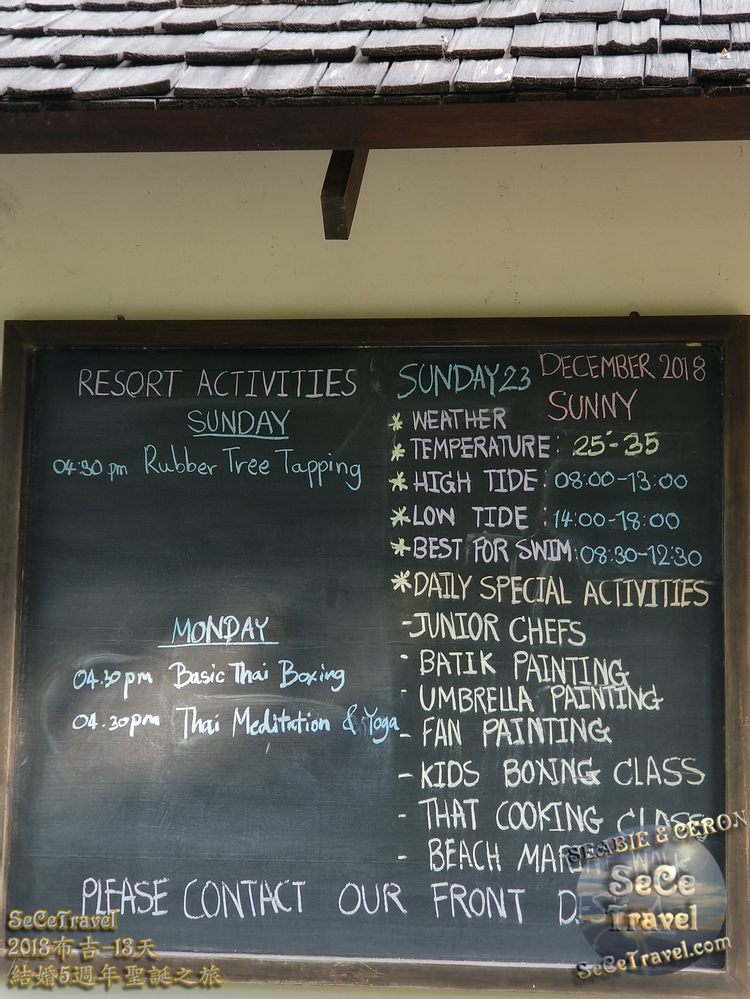 RESORT ACTIVITIES
SUNDAY
04:30 pm Rubber Tree Tapping
MONDAY
04.30pm Basic Thai Boxing
04.30pm Thai Meditation & Yoga
SUNDAY 23 DECEMBER 2018
* WEATHER SUNNY
* TEMPERATURE: 25-35
* HIGH TIDE: 08:00-13:00
* LOW TIDE: 14:00-18:00
* BEST FOR SWIM: 08:30-12:30
* DAILY SPECIAL ACTIVITIES
- JUNIOR CHEFS
- BATIK PAINTING
- UMBRELLA PAINTING
- FAN PAINTING
- KIDS BOXING CLASS
- THAT COOKING CLASS
- BEACH WALK
PLEASE CONTACT OUR FRONT
SeCeTravel
2018布吉-13天
結婚5週年聖誕之旅
SEABIE & CERON
SeCe
Travel
SeCeTravel.com